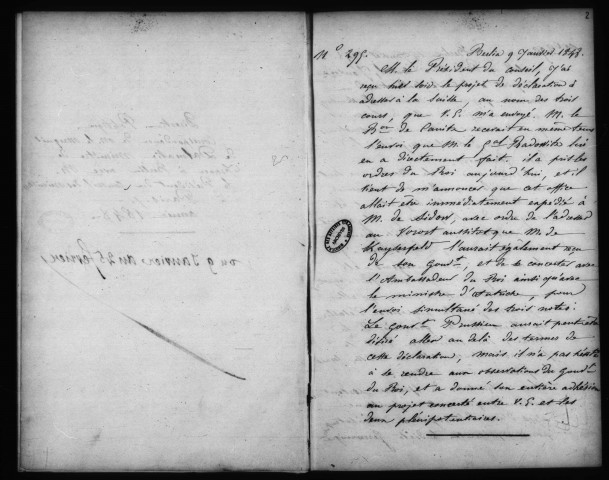 N° 295.
Berlin 9 Janvier 1848.
M. le Président du conseil, j'ai
reçu hier soir le projet de déclaration à
adresser à la Suisse, au nom des trois
cours, que V. E. m'a envoyé. M. le
Bon de Canitz recevait en même tems
l'envoi que M. le Gal Radowitz lui
en a directement fait. il a pris les
ordres du Roi aujourd'hui, et il
vient de m'annoncer que cet office
allait être immédiatement expédié à
M. de Sidow, avec ordre de l'adresser
au Vorort aussitôt que M. de
Kaysersfeld l'aurait également reçu
de son Gouvt, et de se concerter avec
l'Ambassadeur du Roi ainsi qu'avec
le ministre d'Autriche, pour
l'envoi simultané des trois notes.
Le Gouvt Prussien aurait peut-être
désiré aller au delà des termes de
cette déclaration, mais il n'a pas hésité
à se rendre aux observations du Gouvt
du Roi, et a donné son entière adhésion
au projet concerté entre V. E. et les
deux plénipotentiaires.
du 9 Janvier au 25 février